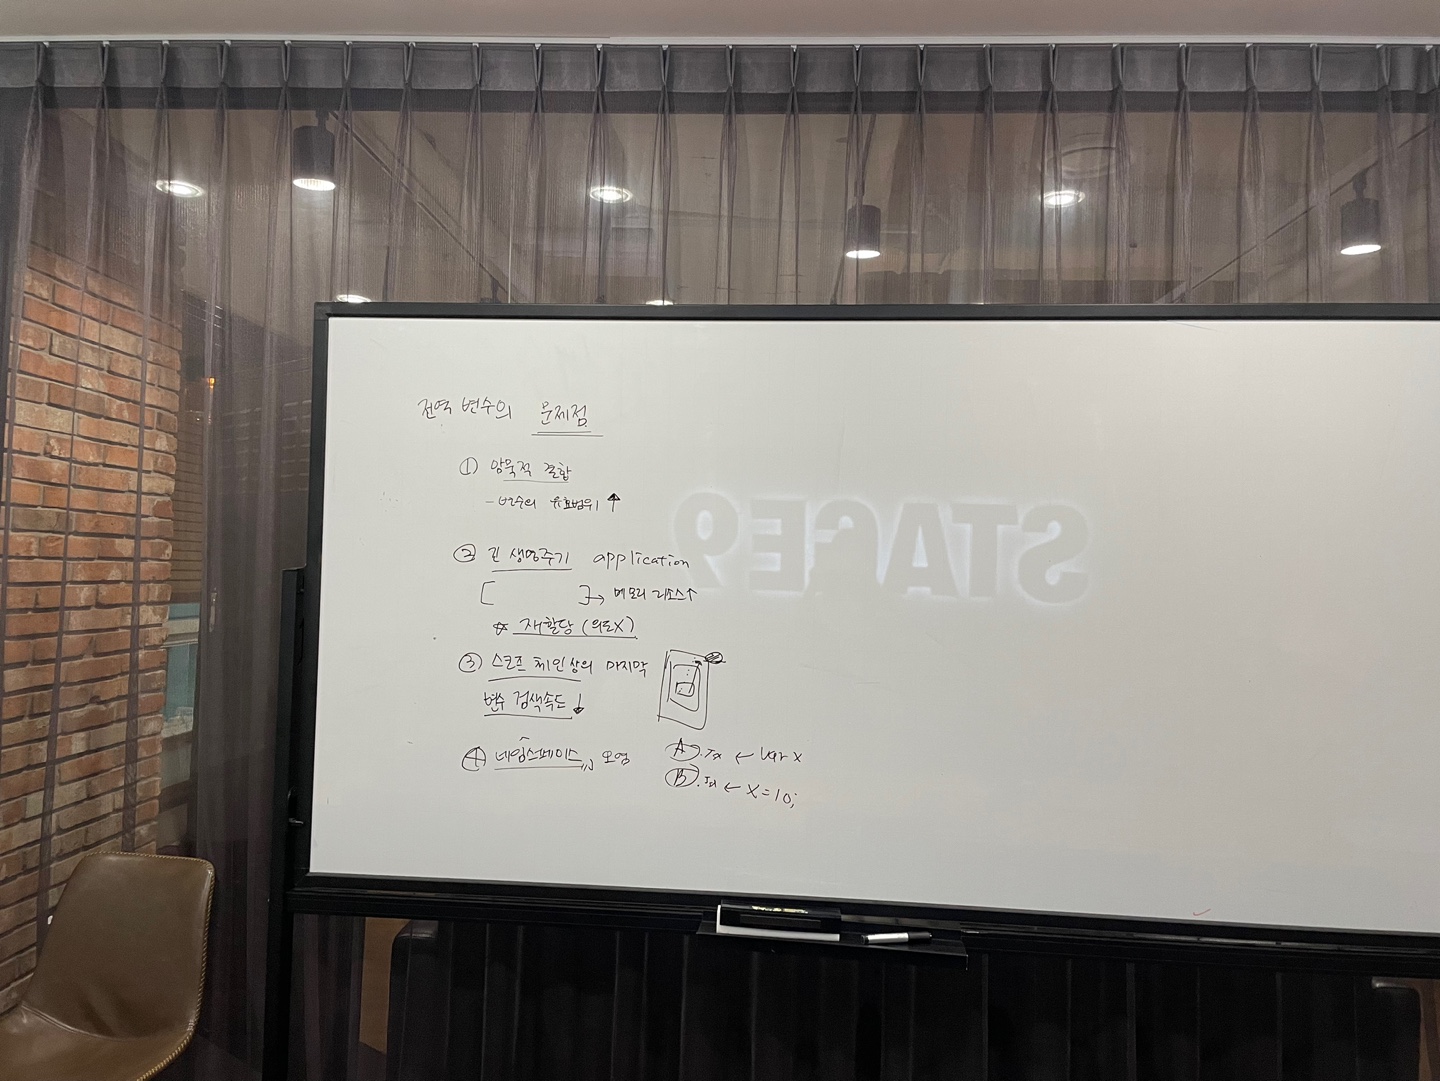 전역 변수의 문제점
① 암묵적 결합
- 변수의 유효범위 ↑
② 긴 생명주기 application
[ ] → 메모리 리소스↑
☆ 재할당 (의도X)
③ 스코프 체인상의 마지막
변수 검색속도 ↓
④ 네임스페이스 오염
A.js ← var x
B.js ← x=10;
STAGE9